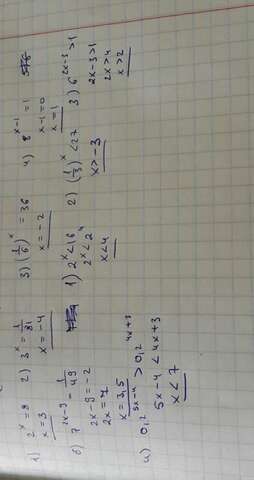 1) 2^x = 8   2) 3^x = 1/81   3) (1/6)^x = 36   4) 8^(x-1) = 1
x = 3   x = -4   x = -2   x-1 = 0
x = 1
5) 7^(2x-9) = 1/49   1) 2^x < 16   2) (1/3)^x < 27   3) 6^(2x-3) > 1
2x-9 = -2   2^x < 2^4   x > -3   2x-3 > 1
2x = 7   x < 4   2x > 4
x = 3,5   x > 2
4) 0,2^(5x-4) > 0,2^(4x+3)
5x-4 < 4x+3
x < 7